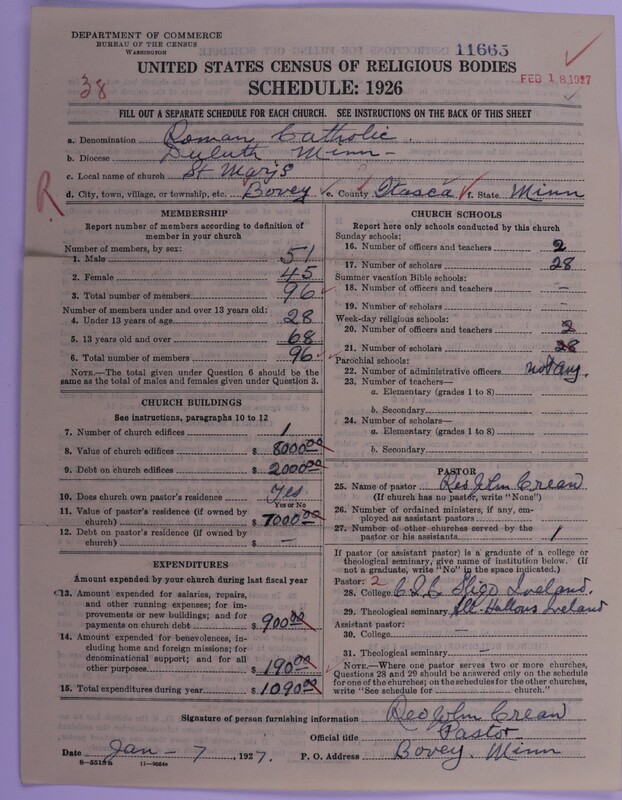 DEPARTMENT OF COMMERCE
BUREAU OF THE CENSUS
WASHINGTON
11665
UNITED STATES CENSUS OF RELIGIOUS BODIES
FEB 18 1927
38
SCHEDULE: 1926
FILL OUT A SEPARATE SCHEDULE FOR EACH CHURCH. SEE INSTRUCTIONS ON THE BACK OF THIS SHEET
a. Denomination Roman Catholic
b. Diocese Duluth Minn-
c. Local name of church St Marys
R
d. City, town, village, or township, etc. Bovey e. County Itasca f. State Minn
MEMBERSHIP
Report number of members according to definition of
member in your church
Number of members, by sex:
1. Male 51
2. Female 45
3. Total number of members 96
Number of members under and over 13 years old:
4. Under 13 years of age 28
5. 13 years old and over 68
6. Total number of members 96
NOTE.—The total given under Question 6 should be the
same as the total of males and females given under Question 3.
CHURCH BUILDINGS
See instructions, paragraphs 10 to 12
7. Number of church edifices 1
8. Value of church edifices $ 8000 00
9. Debt on church edifices $ 2000 00
10. Does church own pastor's residence? Yes
Yes or No
11. Value of pastor's residence (if owned by
church) $ 7000 00
12. Debt on pastor's residence (if owned by
church) $ —
EXPENDITURES
Amount expended by your church during last fiscal year
13. Amount expended for salaries, repairs,
and other running expenses; for im-
provements or new buildings; and for
payments on church debt $ 900 00
14. Amount expended for benevolences, in-
cluding home and foreign missions; for
denominational support; and for all
other purposes $ 190 00
15. Total expenditures during year $ 1090 00
CHURCH SCHOOLS
Report here only schools conducted by this church
Sunday schools:
16. Number of officers and teachers 2
17. Number of scholars 28
Summer vacation Bible schools:
18. Number of officers and teachers —
19. Number of scholars —
Week-day religious schools:
20. Number of officers and teachers 2
21. Number of scholars 28
Parochial schools:
22. Number of administrative officers not any.
23. Number of teachers—
a. Elementary (grades 1 to 8)
b. Secondary
24. Number of scholars—
a. Elementary (grades 1 to 8)
b. Secondary
PASTOR
25. Name of pastor Rev Wm Crean
(If church has no pastor, write "None")
26. Number of ordained ministers, if any, em-
ployed as assistant pastors
27. Number of other churches served by the
pastor or his assistants 1
If pastor (or assistant pastor) is a graduate of a college or
theological seminary, give name of institution below. (If
not a graduate, write "No" in the space indicated.)
Pastor: 2
28. College Sligo Ireland.
29. Theological seminary All Hallows Ireland
Assistant pastor:
30. College —
31. Theological seminary —
NOTE.—Where one pastor serves two or more churches,
Questions 28 and 29 should be answered only on the schedule
for one of the churches; on the schedules for the other churches,
write "See schedule for church."
Signature of person furnishing information Rev Wm Crean
Official title Pastor
Date Jan - 7, 1927. P. O. Address Bovey. Minn